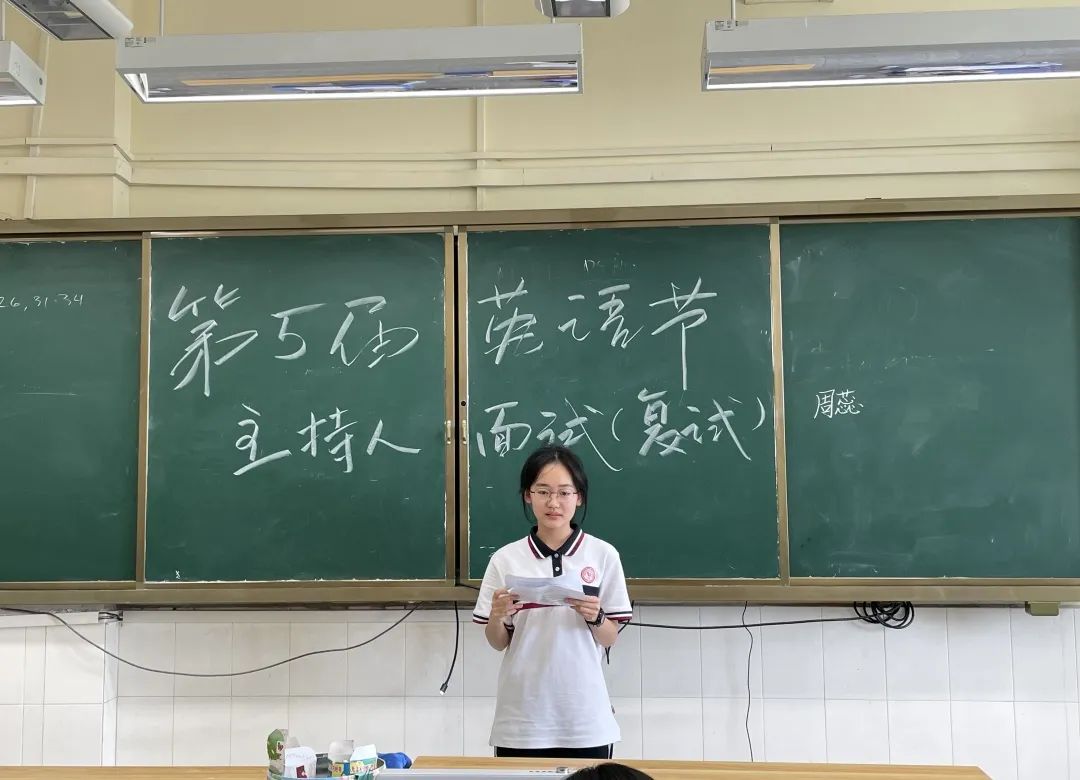 26,31-34
第5届 英语节
主持人 面试(复试)
周蕊